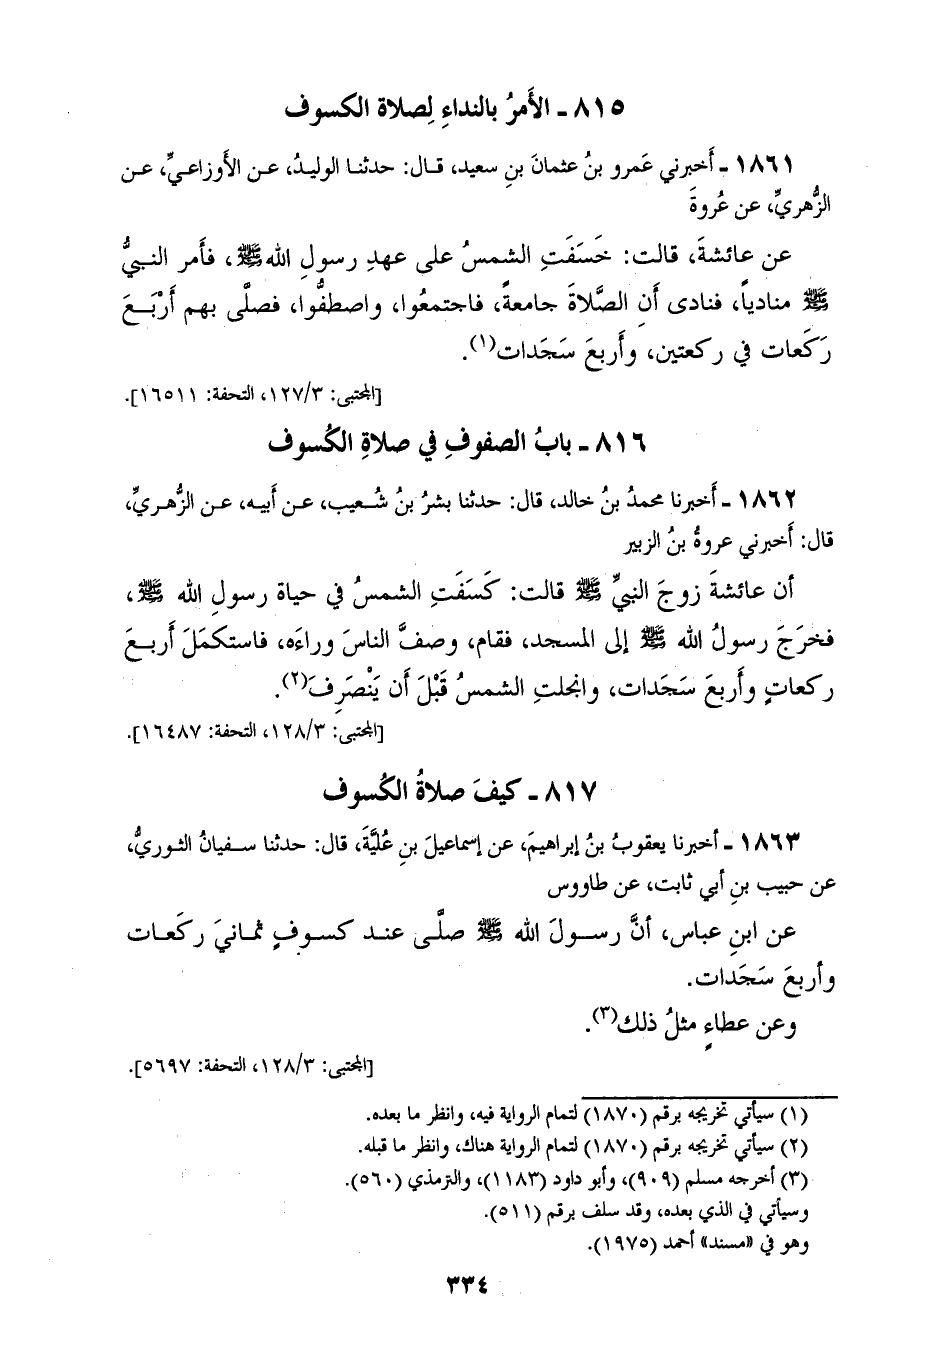 ٨١٥ ـ الأَمرُ بالنداءِ لِصلاة الكسوف
١٨٦١ ـ أَخبرني عَمرو بنُ عثمانَ بنِ سعيد، قال: حدثنا الوليدُ، عن الأوزاعيِّ، عن
الزُّهريِّ، عن عُروةَ
عن عائشةَ، قالت: خَسَفَتِ الشمسُ على عهدِ رسولِ الله ﷺ، فأَمر النبيُّ
ﷺ منادياً، فنادى أَنِ الصَّلاةَ جامعةً، فاجتمعُوا، واصطفُّوا، فصلَّى بهم أَرْبَعَ
رَكَعات في ركعتين، وأَربعَ سَجَدات(١).
[المجتبى: ١٢٧/٣، التحفة: ١٦٥١١].
٨١٦ ـ بابُ الصفوفِ في صلاةِ الكُسوف
١٨٦٢ ـ أَخبرنا محمدُ بنُ خالد، قال: حدثنا بشرُ بنُ شُعيب، عن أبيه، عن الزُّهريِّ،
قال: أَخبرني عروةُ بنُ الزبير
أن عائشةَ زوجَ النبيِّ ﷺ قالت: كَسَفَتِ الشمسُ في حياة رسولِ الله ﷺ،
فخرَجَ رسولُ الله ﷺ إلى المسجد، فقام، وصفَّ الناسَ وراءَه، فاستكمَلَ أَربعَ
ركعاتٍ وأَربعَ سَجَدات، وانجلتِ الشمسُ قَبْلَ أَن يَنْصَرِفَ(٢).
[المجتبى: ١٢٨/٣، التحفة: ١٦٤٨٧].
٨١٧ ـ كيفَ صلاةُ الكُسوف
١٨٦٣ ـ أخبرنا يعقوبُ بنُ إبراهيمَ، عن إسماعيلَ بنِ عُليَّةَ، قال: حدثنا سفيانُ الثوريُّ،
عن حبيب بنِ أبي ثابت، عن طاووس
عن ابنِ عباس، أنَّ رسولَ الله ﷺ صلَّى عند كسوفٍ ثمانيَ ركَعات
وأربعَ سَجَدات.
وعن عطاءٍ مثلُ ذلك(٣).
[المجتبى: ١٢٨/٣، التحفة: ٥٦٩٧].
(١) سيأتي تخريجه برقم (١٨٧٠) لتمام الرواية فيه، وانظر ما بعده.
(٢) سيأتي تخريجه برقم (١٨٧٠) لتمام الرواية هناك، وانظر ما قبله.
(٣) أخرجه مسلم (٩٠٩)، وأبو داود (١١٨٣)، والترمذي (٥٦٠).
وسيأتي في الذي بعده، وقد سلف برقم (٥١١).
وهو في «مسند» أحمد (١٩٧٥).
٣٣٤